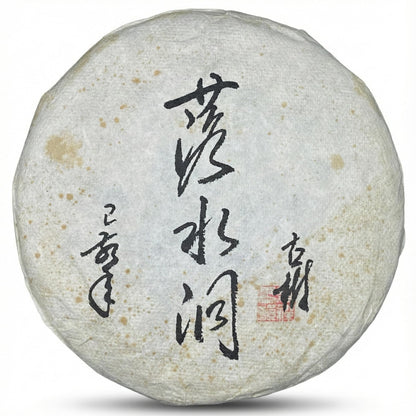 古樹
落水洞
己亥年